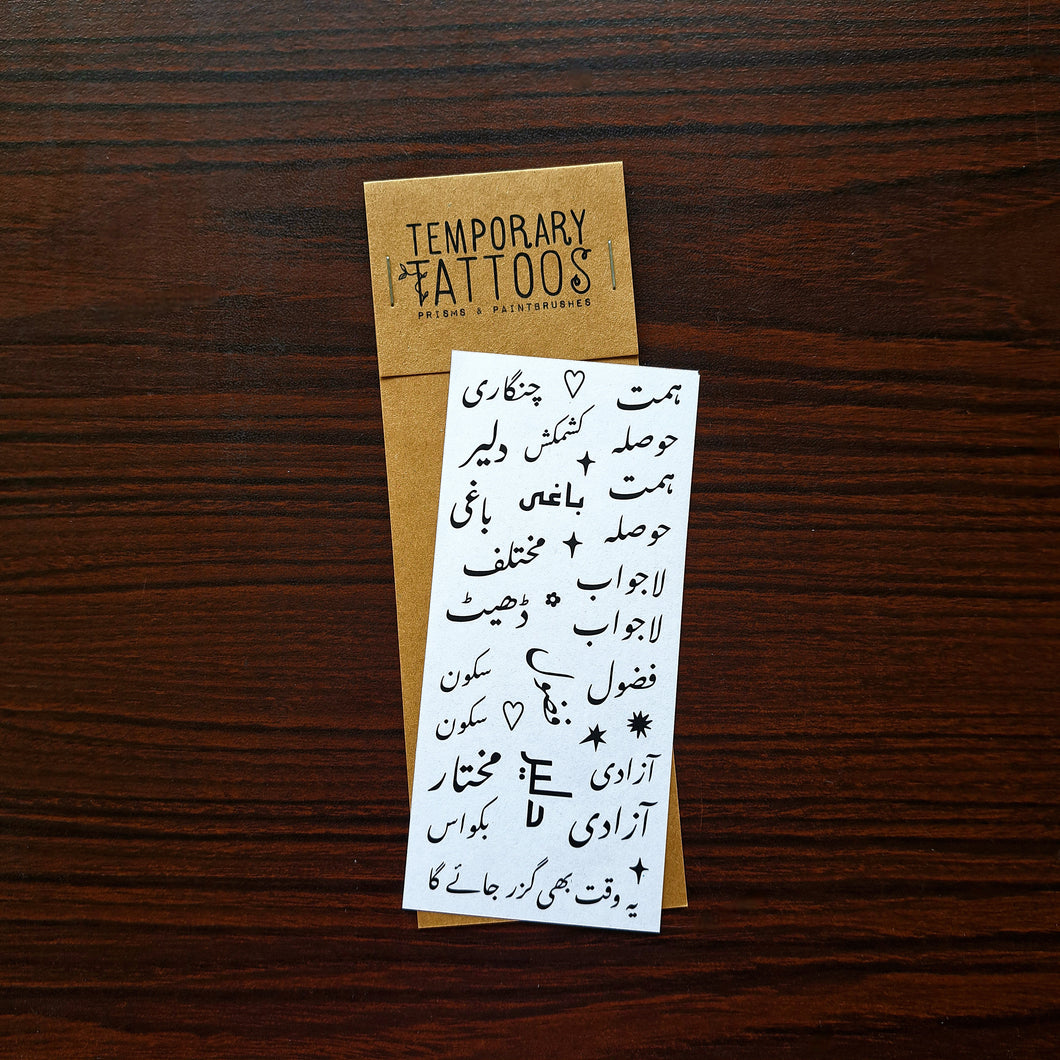 TEMPORARY
TATTOOS
PRISMS & PAINTBRUSHES
ہمت چنگاری
حوصلہ کشمکش دلیر
ہمت باغی باغی
حوصلہ مختلف
لاجواب ڈھیٹ
لاجواب
فضول فضول سکون
سکون
آزادی دلیر مختار
آزادی بکواس
یہ وقت بھی گزر جائے گا